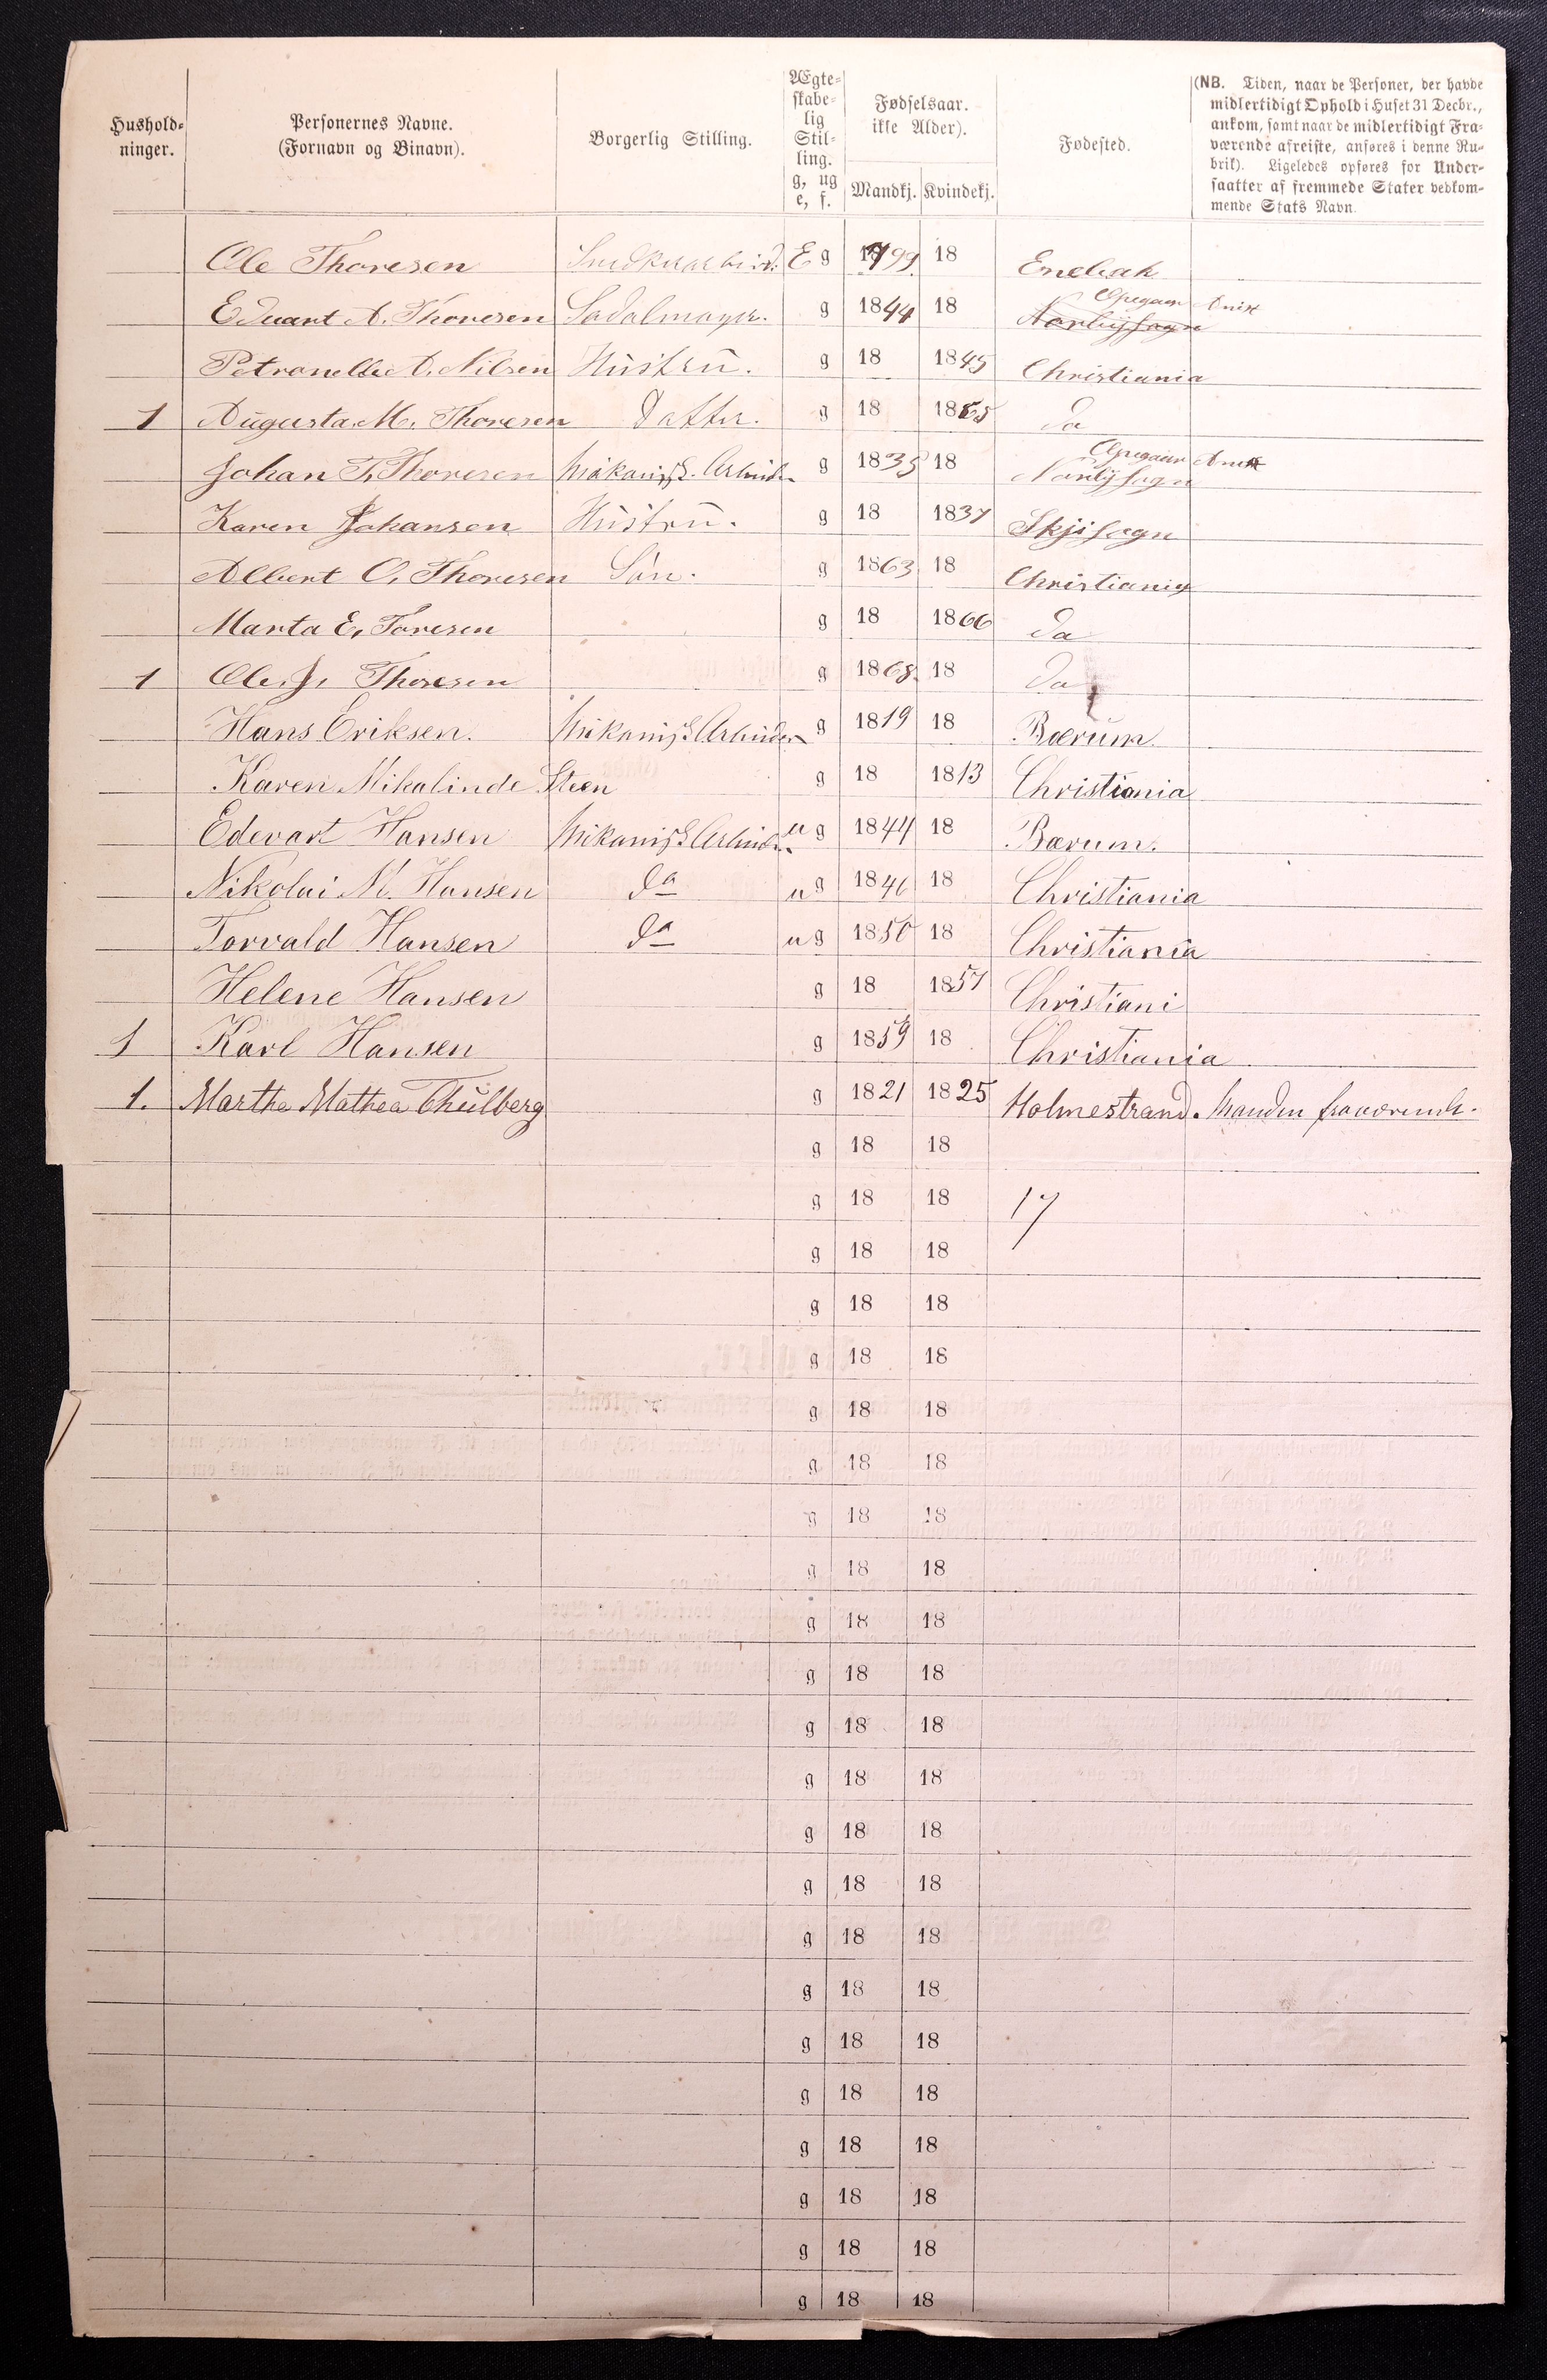 Hushold-
ninger.
Personernes Navne.
(Fornavn og Binavn).
Borgerlig Stilling.
Ægte-
skabe-
lig
Stil-
ling.
g, ug
e, f.
Fødselsaar.
ikke Alder).
Mandkj. Kvindekj.
Fødested.
(NB. Tiden, naar de Personer, der havde
midlertidigt Ophold i Huset 31 Decbr.,
ankom, samt naar de midlertidigt Fra-
værende afreiste, anføres i denne Ru-
brik). Ligeledes opføres for Under-
saatter af fremmede Stater vedkom-
mende Stats Navn.
Ole Thoresen Snedkerarbeid. E g 1799 18 Enebak
Eduart A. Thoresen Sadalmager. g 1844 18 Norbysogn
Petronelle A. Nilsen Hustru. g 18 1845 Christiania
1 Augusta M. Thoresen Datter. g 18 1865 Do
Johan T. Thoresen Mekanisk Arbeider g 1835 18 Norbysogn
Karen Johansen Hustru. g 18 1837 Skjisogn
Albert O. Thoresen Sön. g 1863 18 Christiania
Marta E. Toresen g 18 1866 do
1 Ole J. Thoresen g 1868 18 Do
Hans Eriksen. Mekanisk Arbeider g 1819 18 Bærum.
Karen Mikalinde Steen g 18 1813 Christiania
Edevart Hansen Mekanisk Arbeider u g 1844 18 Bærum.
Nikolai M. Hansen do u g 1846 18 Christiania
Torvald Hansen do u g 1850 18 Christiania
Helene Hansen g 18 1857 Christiani
1 Karl Hansen g 1859 18 Christiania
1. Marthe Mathea Thulberg g 1821 1825 Holmestrand. Manden fraværende.
g 18 18
g 18 18 17
g 18 18
g 18 18
g 18 18
g 18 18
g 18 18
g 18 18
g 18 18
g 18 18
g 18 18
g 18 18
g 18 18
g 18 18
g 18 18
g 18 18
g 18 18
g 18 18
g 18 18
g 18 18
g 18 18
g 18 18
g 18 18